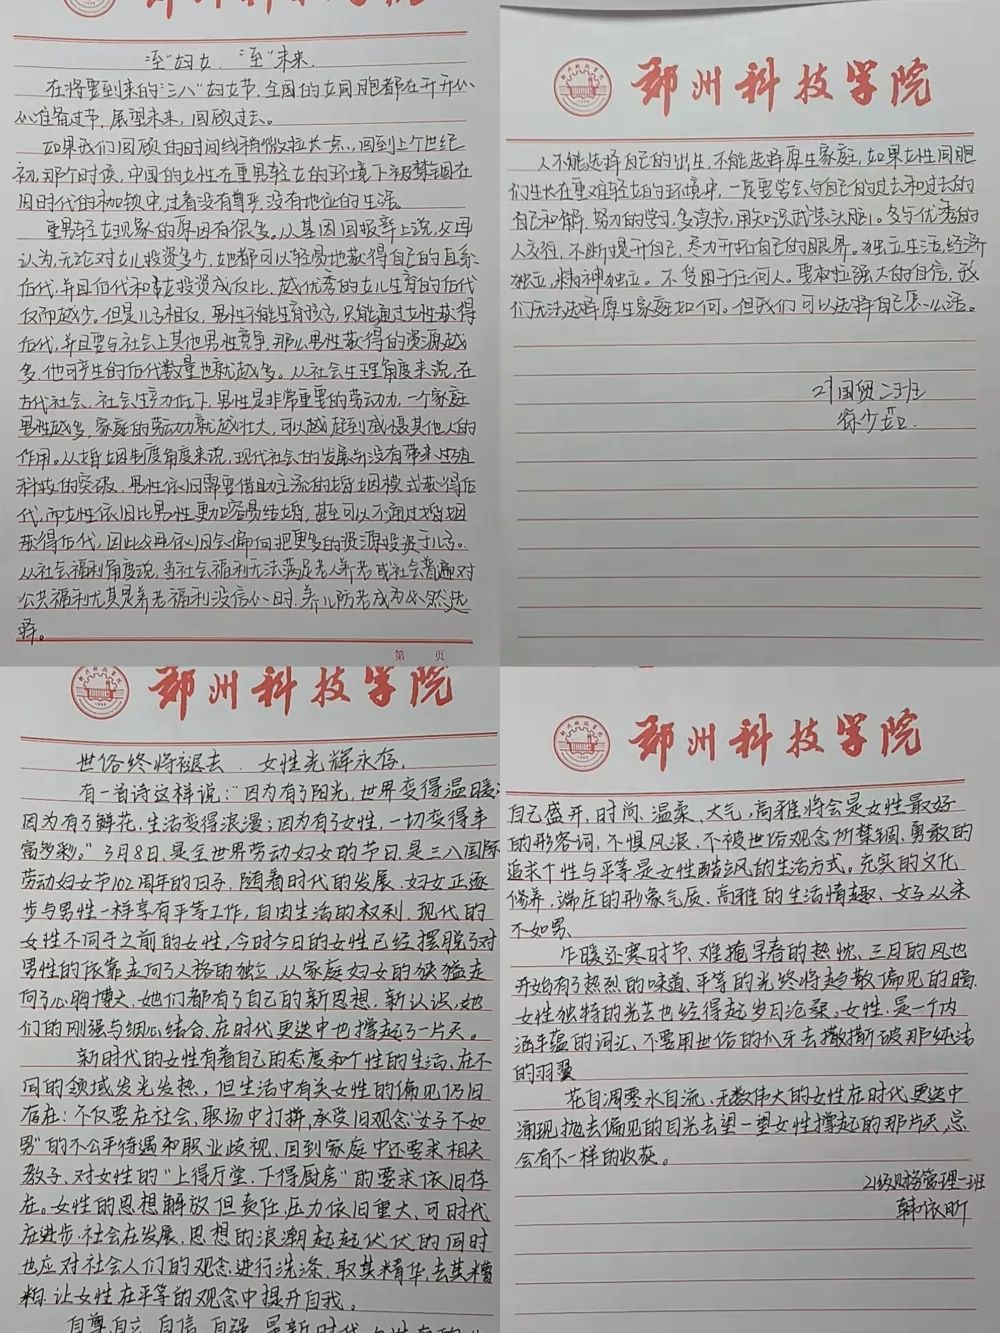 郑州科技学院
至"妇女，至"未来.
在将要到来的"三八"妇女节，全国的女同胞都在开开心
心准备过节，展望未来，回顾过去。
如果我们回顾的时间线稍微拉长一点，回到上个世纪
初，那个时候，中国的女性在重男轻女的环境下被禁锢在
旧时代的枷锁中，过着没有尊严，没有地位的生活。
重男轻女现象的原因有很多。从基因回报率上说，父母
认为，无论对女儿投资多少，她都可以轻易地获得自己的直系
后代，并且后代和投资成反比，越优秀的女儿生育的后代
反而越少。但是儿子相反，男性不能生育孩子，只能通过女性获得
后代，并且要与社会上其他男性竞争，那么男性获得的资源越
多，他可产生的后代数量也就越多。从社会生理角度来说，在
古代社会，社会生产力低下，男性是非常重要的劳动力，一个家庭
男性越多，家庭的劳动力就越壮大，可以越起到威慑其他人的
作用。从婚姻制度角度来说，现代社会的发展并没有带来生殖
科技的突破，男性依旧需要借助主流的婚姻模式获得后
代，而女性依旧比男性更加容易结婚，甚至可以不通过婚姻
获得后代，因此父母依旧会偏向把更多的资源投资于儿子。
从社会福利角度说，当社会福利无法满足老人养老或社会普遍对
公共福利尤其是养老福利没信心时，养儿防老成为必然选
择。
第 页
郑州科技学院
人不能选择自己的出生，不能选择原生家庭，如果女性同胞
们生长在重男轻女的环境中，一定要学会与自己的过去和过去的
自己和解，努力的学习，多读书，用知识武装头脑。多与优秀的
人交往，不断提升自己，尽力开拓自己的眼界。独立生活，经济
独立，精神独立。不受困于任何人。要有拉强大的自信，我
们无法选择原生家庭如何。但我们可以选择自己怎么活。
21国贸二班
徐少茹.
郑州科技学院
世俗终将褪去，女性光辉永存.
有一首诗这样说："因为有了阳光，世界变得温暖；
因为有了鲜花，生活变得浪漫；因为有了女性，一切变得丰
富多彩。"3月8日，是全世界劳动妇女的节日，是三八国际
劳动妇女节102周年的日子，随着时代的发展，妇女正逐
步与男性一样享有平等工作，自由生活的权利，现代的
女性不同于之前的女性，今时今日的女性已经摆脱了对
男性的依靠走向了人格的独立，从家庭妇女的狭隘走
向了心胸博大，她们都有了自己的新思想，新认识，她
们的刚强与细心结合，在时代更迭中也撑起了一片天。
新时代的女性有着自己的态度和个性的生活，在不
同的领域发光发热，但生活中有关女性的偏见仍旧
存在：不仅要在社会，职场中打拼，承受旧观念"女子不如
男"的不公平待遇和职业歧视，回到家庭中还要求相夫
教子，对女性的"上得厅堂，下得厨房"的要求依旧存
在。女性的思想解放但责任，压力依旧重大，可时代
在进步，社会在发展，思想的浪潮起起伏伏的同时
也应对社会人们的观念进行洗涤，取其精华，去其糟
粕，让女性在平等的观念中提升自我。
自尊，自立，自信，自强，是新时代女性
郑州科技学院
自己盛开，时间，温柔，大气，高雅将会是女性最好
的形容词，不惧风浪，不被世俗观念所禁锢，勇敢的
追求个性与平等是女性酷飒的生活方式。充实的文化
修养，端庄的形象气质，高雅的生活情趣，女子从来
不如男.
乍暖还寒时节，难掩早春的热忱，三月的风也
开始有了热烈的味道，平等的光终将驱散偏见的暗.
女性独特的光芒也经得起岁月沧桑。女性，是一个内
涵丰蕴的词汇，不要用世俗的爪牙去撕破那纯洁
的羽翼
花自凋零水自流，无数伟大的女性在时代更迭中
涌现，抛去偏见的目光去望一望女性撑起的那片天，总
会有不一样的收获。
21级财务管理一班
韩依昕